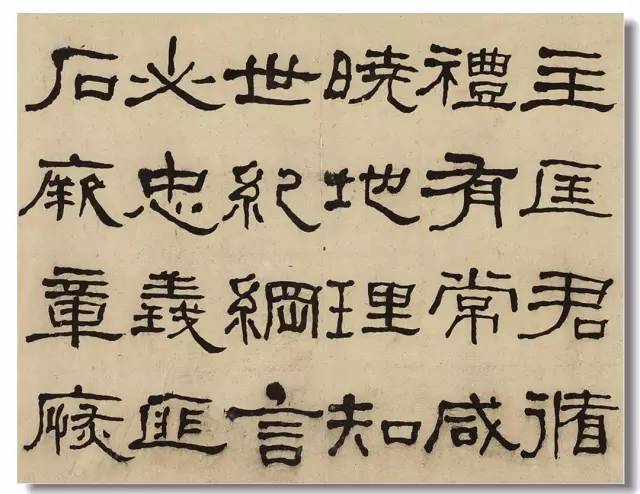 主匡君循
禮有常咸
曉地理知
世紀綱言
必忠義匪
石厥章